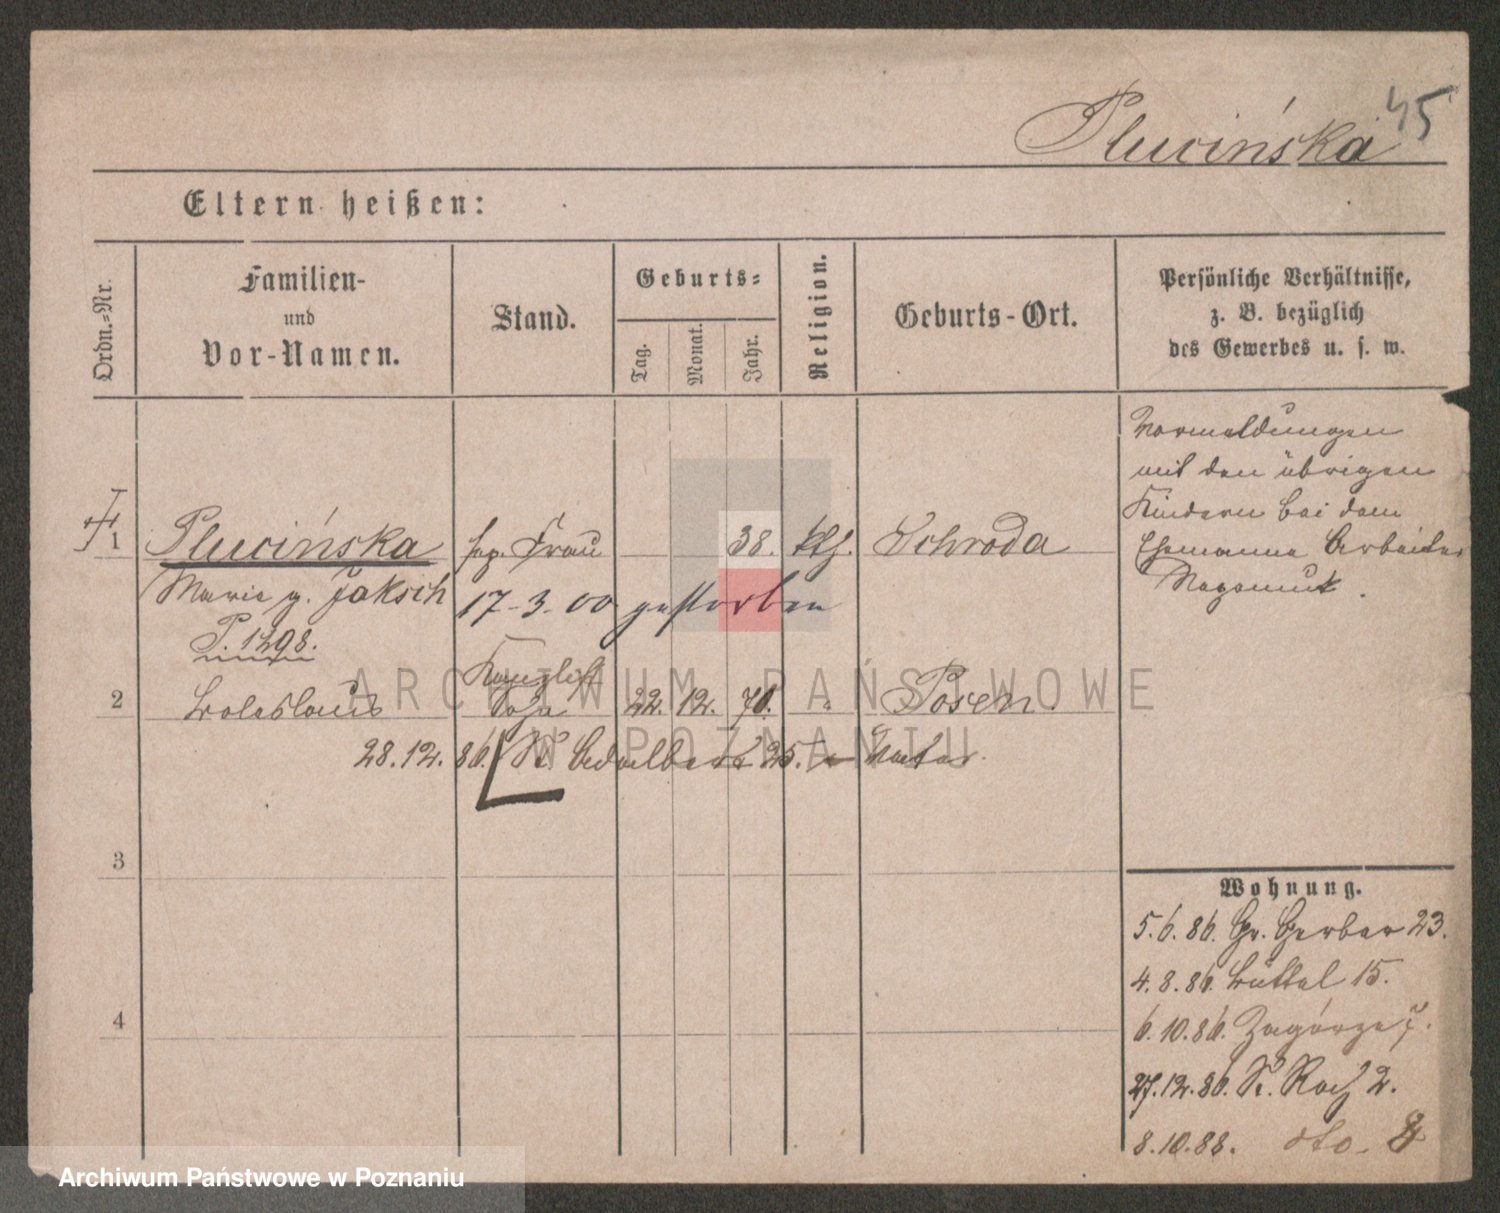 45
Plucińska
Eltern heißen:
Ordn.-Nr.
Familien-
und
Vor-Namen.
Stand.
Geburts-
Tag.
Monat.
Jahr.
Religion.
Geburts-Ort.
Persönliche Verhältnisse,
z. B. bezüglich
des Gewerbes u. s. w.
mit den übrigen
Kindern bei dem
Ehemanne Arbeiter
1 Plucińska sep. Frau 38. kth. Schroda
Marie g. Jaksch 17-3.00 gestorben
P. 1298.
Kanzlist
2 Boleslaus Sohn 22. 12. 70. " Posen.
28.12.86. St. Adalbert 25. Vater.
3
4
Wohnung.
5.6.86. Gr. Gerber 23.
4.8.86. Büttel 15.
6.10.86. Zagorze 7.
27.12.86. St. Roch 2.
8.10.88. dto. 8
ARCHIWUM PAŃSTWOWE
W POZNANIU
Archiwum Państwowe w Poznaniu